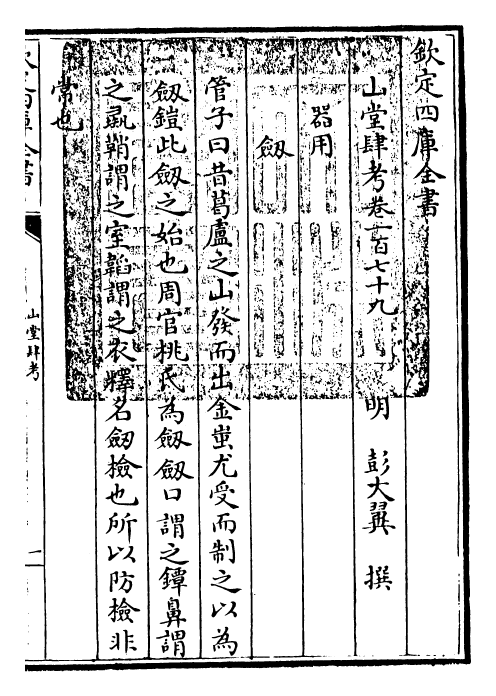 欽定四庫全書
山堂肆考卷一百七十九
明 彭大翼 撰
器用
劔
管子曰昔葛盧之山發而出金蚩尤受而制之以為
劔鎧此劔之始也周官桃氏為劔劔口謂之鐔鼻謂
之璏鞘謂之室韜謂之衣釋名劔檢也所以防檢非
常也
山堂肆考
一